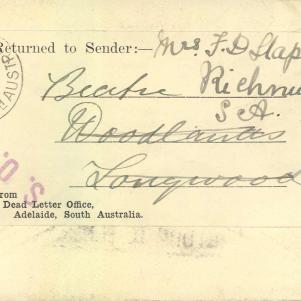 AUSTR
Returned to Sender:— Mrs F. D. Slap
Beatrice Richm
S A.
Woodlands
Longwood
O. S.
From
Dead Letter Office,
Adelaide, South Australia.